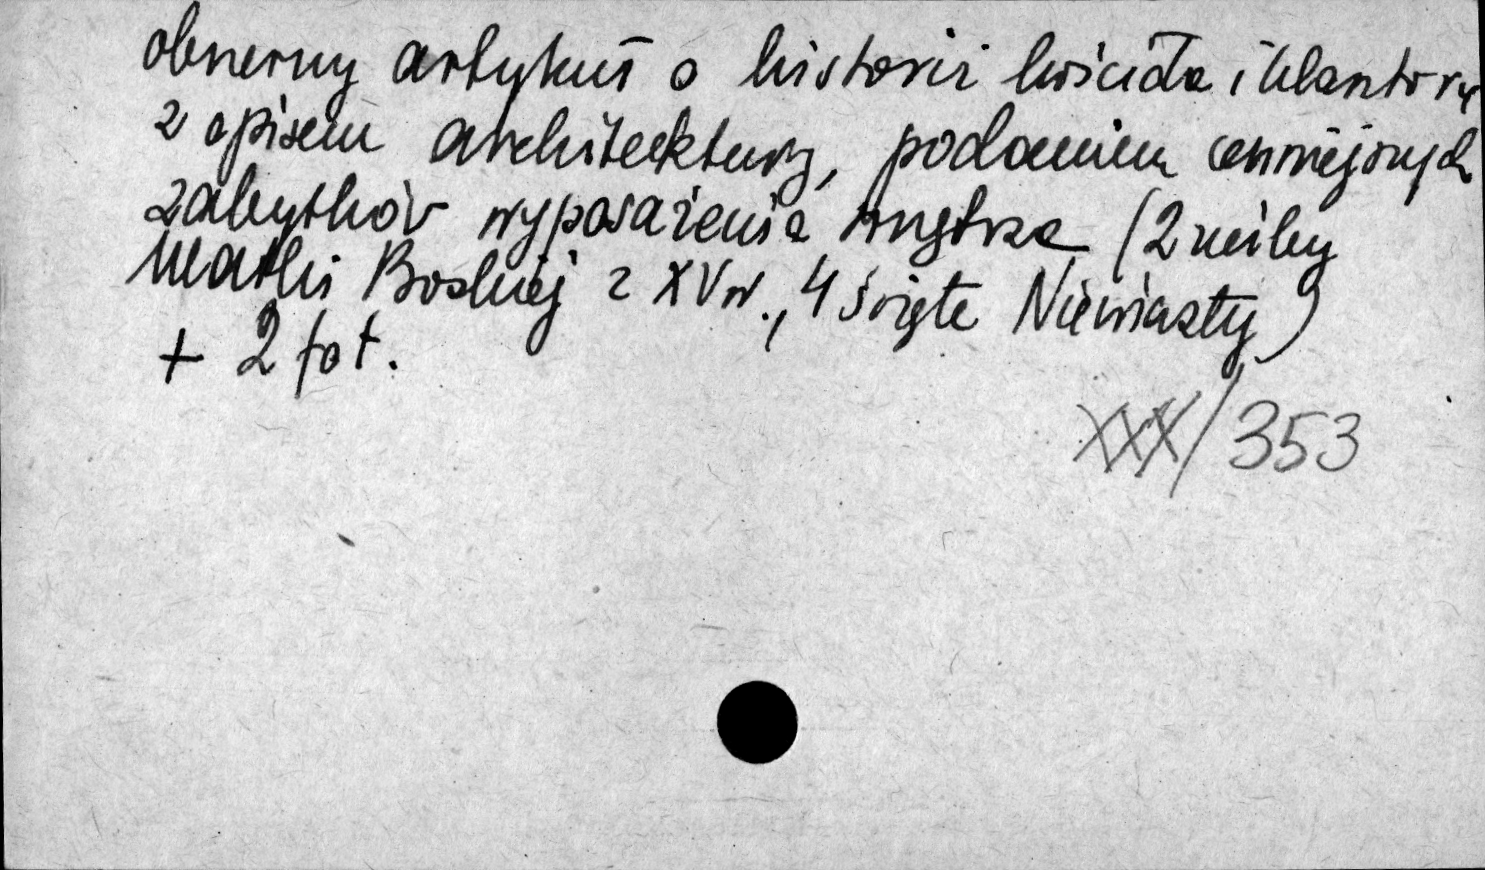 obszerny artykuł o historii kościoła i klasztoru
z opisem architektury, podaniem cenniejszych
zabytków wyposażenia wnętrza (2 rzeźby
Matki Boskiej z XV w., 4 Święte Niewiasty)
+ 2 fot.
XXX/353